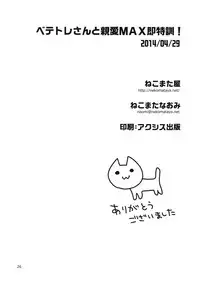 ベテトレさんと親愛MAX即特訓！
2014/04/29
ねこまた屋
http://nekomataya.net/
ねこまたなおみ
naomi@nekomataya.net
印刷:アクシス出版
ありがとう
ございました